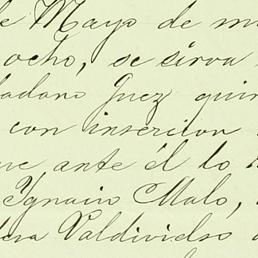 de Mayo de mi
ocho, se sirva
dadano Juez quin
con insercion
que ante él lo h
Ygnacio Malo,
dera Valdivielso